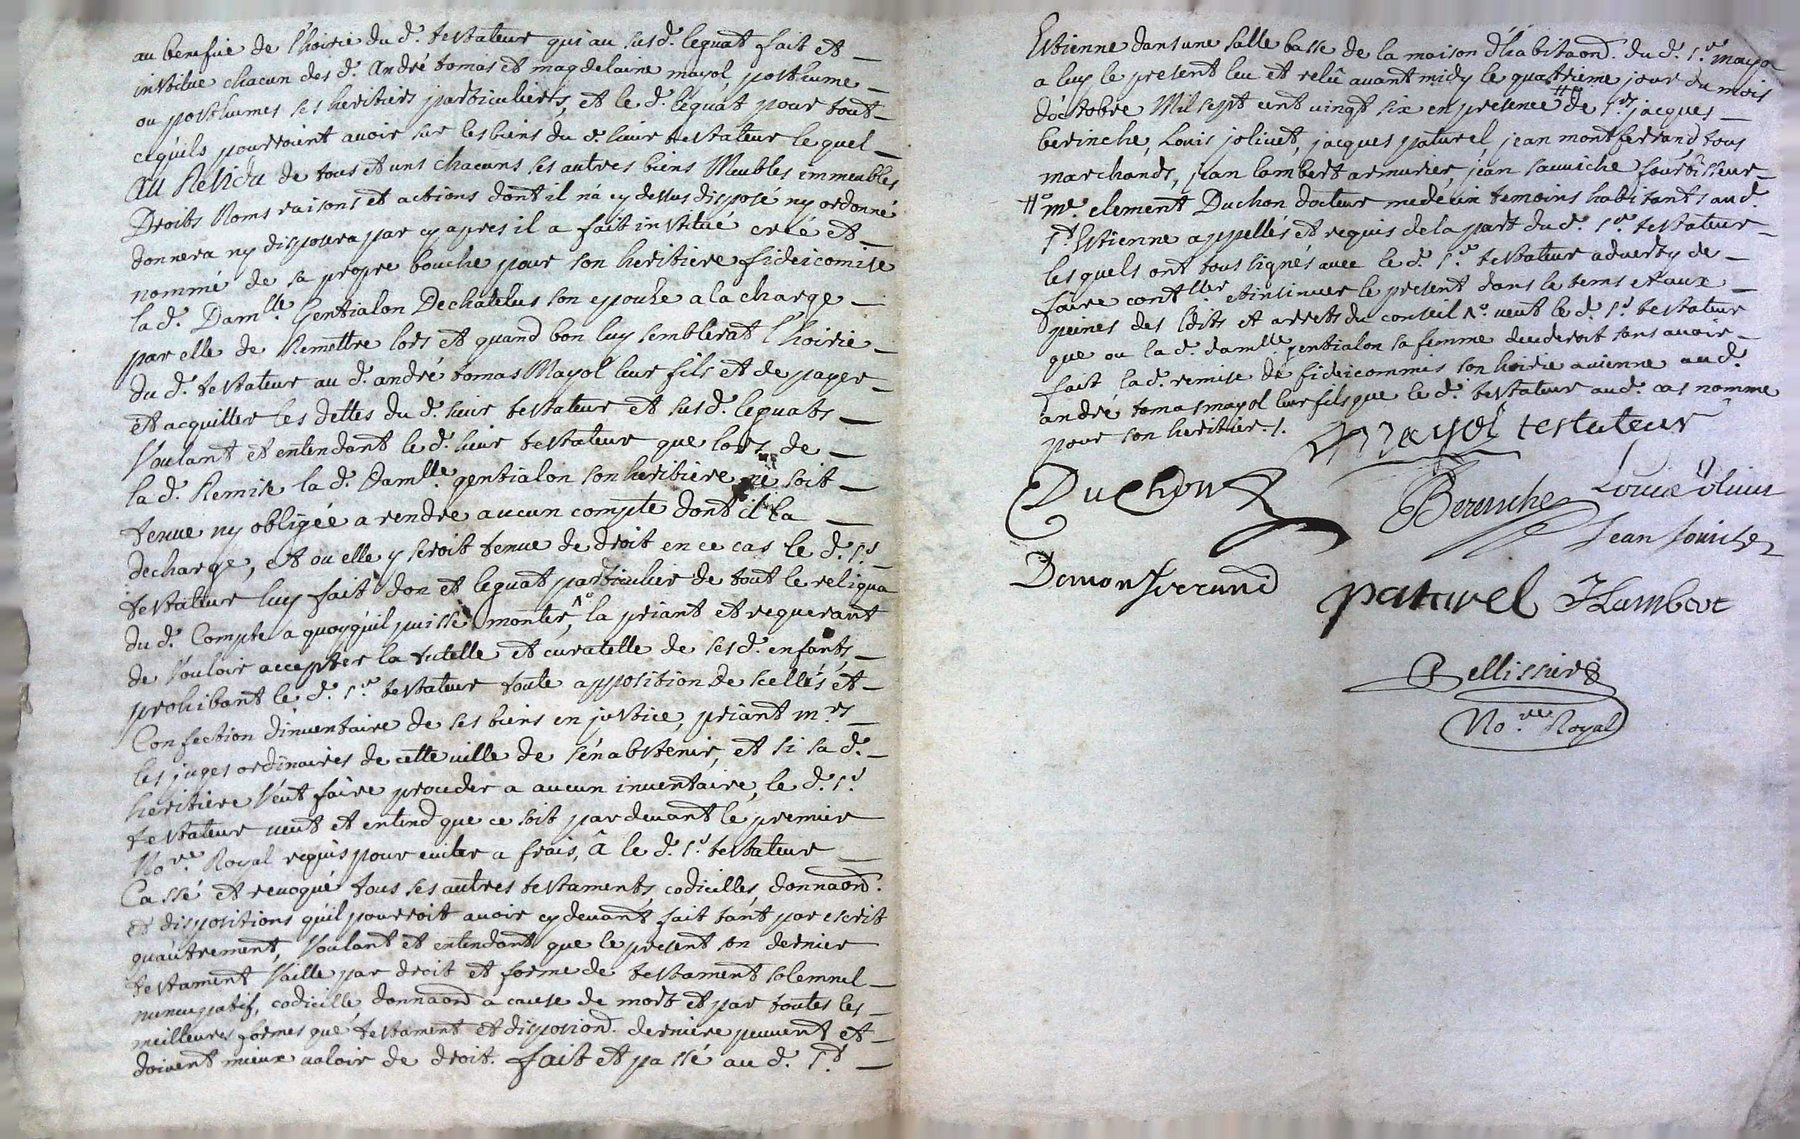 au benefice de l'hoirie du d. testateur qui au susd. legat fait et
institue chacun des d. andré tomas et magdelaine mayol posthume
ou posthumes ses heritiers particuliers, et le d. legat pour tout
ce quils pourroient avoir sur les biens du d. sieur testateur lequel
au Residu de tous et uns chacuns ses autres biens Meubles immeubles
Droits Noms raisons et actions dont il n'a cy dessus disposé ny ordonné
donnera ny disposera par cy apres il a fait institué creé et
nommé de sa propre bouche pour son heritiere fideicomise
la d. Dam.lle Gentialon Dechatelus son epouse a la charge
par elle de Remettre lors et quand bon luy semblerat l'hoirie
du d. testateur au d. andré tomas Mayol leur fils et de payer
et acquitter les dettes du d. sieur testateur et susd. legats
Voulant et entendant le d. sieur testateur que lors de
la d. Remise la d. Dam.lle gentialon son heritiere ne soit
tenue ny obligée a rendre aucun compte dont il la
decharge, et ou elle y seroit tenue de droit en ce cas le d. s.r
testateur luy fait don et legat particulier de tout le reliqua
du d. Compte a quoy quil puisse monter, la priant et requerant
de vouloir accepter la tutelle et curatelle de ses d. enfants,
prohibant le d. s.r testateur toute apposition de scellés et
Confection dinventaire de ses biens en justice, priant m.rs
les juges ordinaires de cette ville de s'en abstenir, et si sa d.
heritiere veut faire proceder a aucun inventaire, le d. s.r
testateur veut et entend que ce soit par devant le premier
No.re Royal requis pour eviter a frais, â le d. s.r testateur
Cassé et revoqué tous ses autres testaments, codicilles, donnaon.
et dispositions quil pourroit avoir cy devant fait tant par escrit
qu'autrement, Voulant et entendant que le present son dernier
testament Vaille par droit et forme de testament solemnel
nuncupatif, codicille, donnaon a cause de mort et par toutes les
meilleures formes que testament et disposion. derniere peuvent et
doivent mieux valoir de droit. fait et passé au d. s.t
Estienne dans une salle basse de la maison d'habitaon. du d. s.r mayol
a luy le present leu et releu avant midy le quatrieme jour du mois
d'octobre Mil sept cent vingt six en presence # de s.rs jacques
berinche, Louis jolivet, jacques paturel, jean montferrand, tous
marchands, jean lambert armurier, jean sauviche fourbisseur
# m.e clement Duchon docteur medecin temoins habitants aud.
s.t Estienne appellés et requis de la part du d. s.r testateur
lesquels ont tous signés avec le d. s.r testateur adverty de
faire cont.ller et insinuer le present dans le tems et aux
peines des Edits et arrets du conseil, veut le d. s.r testateur
que ou la d. dam.lle gentialon sa femme decederoit sans avoir
fait la d. remise de fideicommis son hoirie avienne au d.
andré tomas mayol leur fils que le d. testateur aud. cas nomme
pour son heritier ./.
Mayol testateur
Duchon
Berinche
Louis Jolivet
Jean Souiche
Demonferrand
paturel
J Lambert
Pellissier
No.re Royal